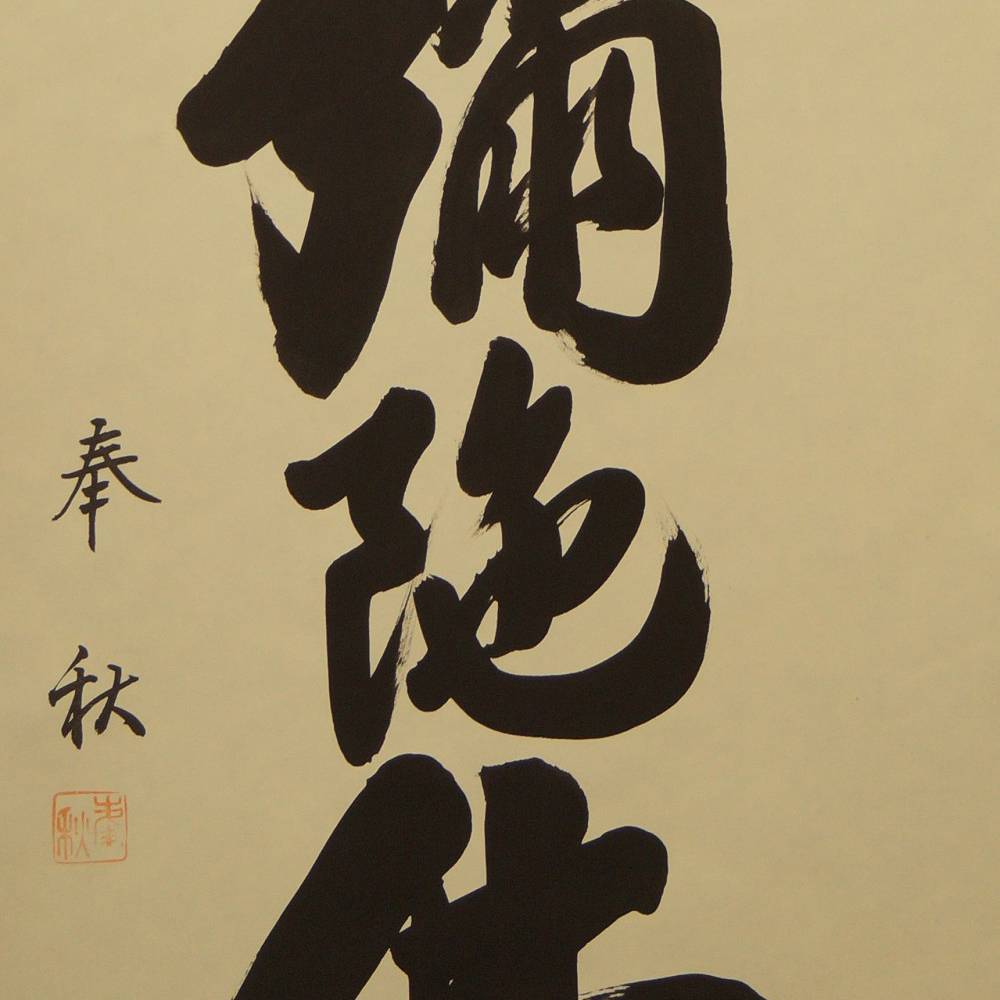 彌陀仏
奉秋
奉秋